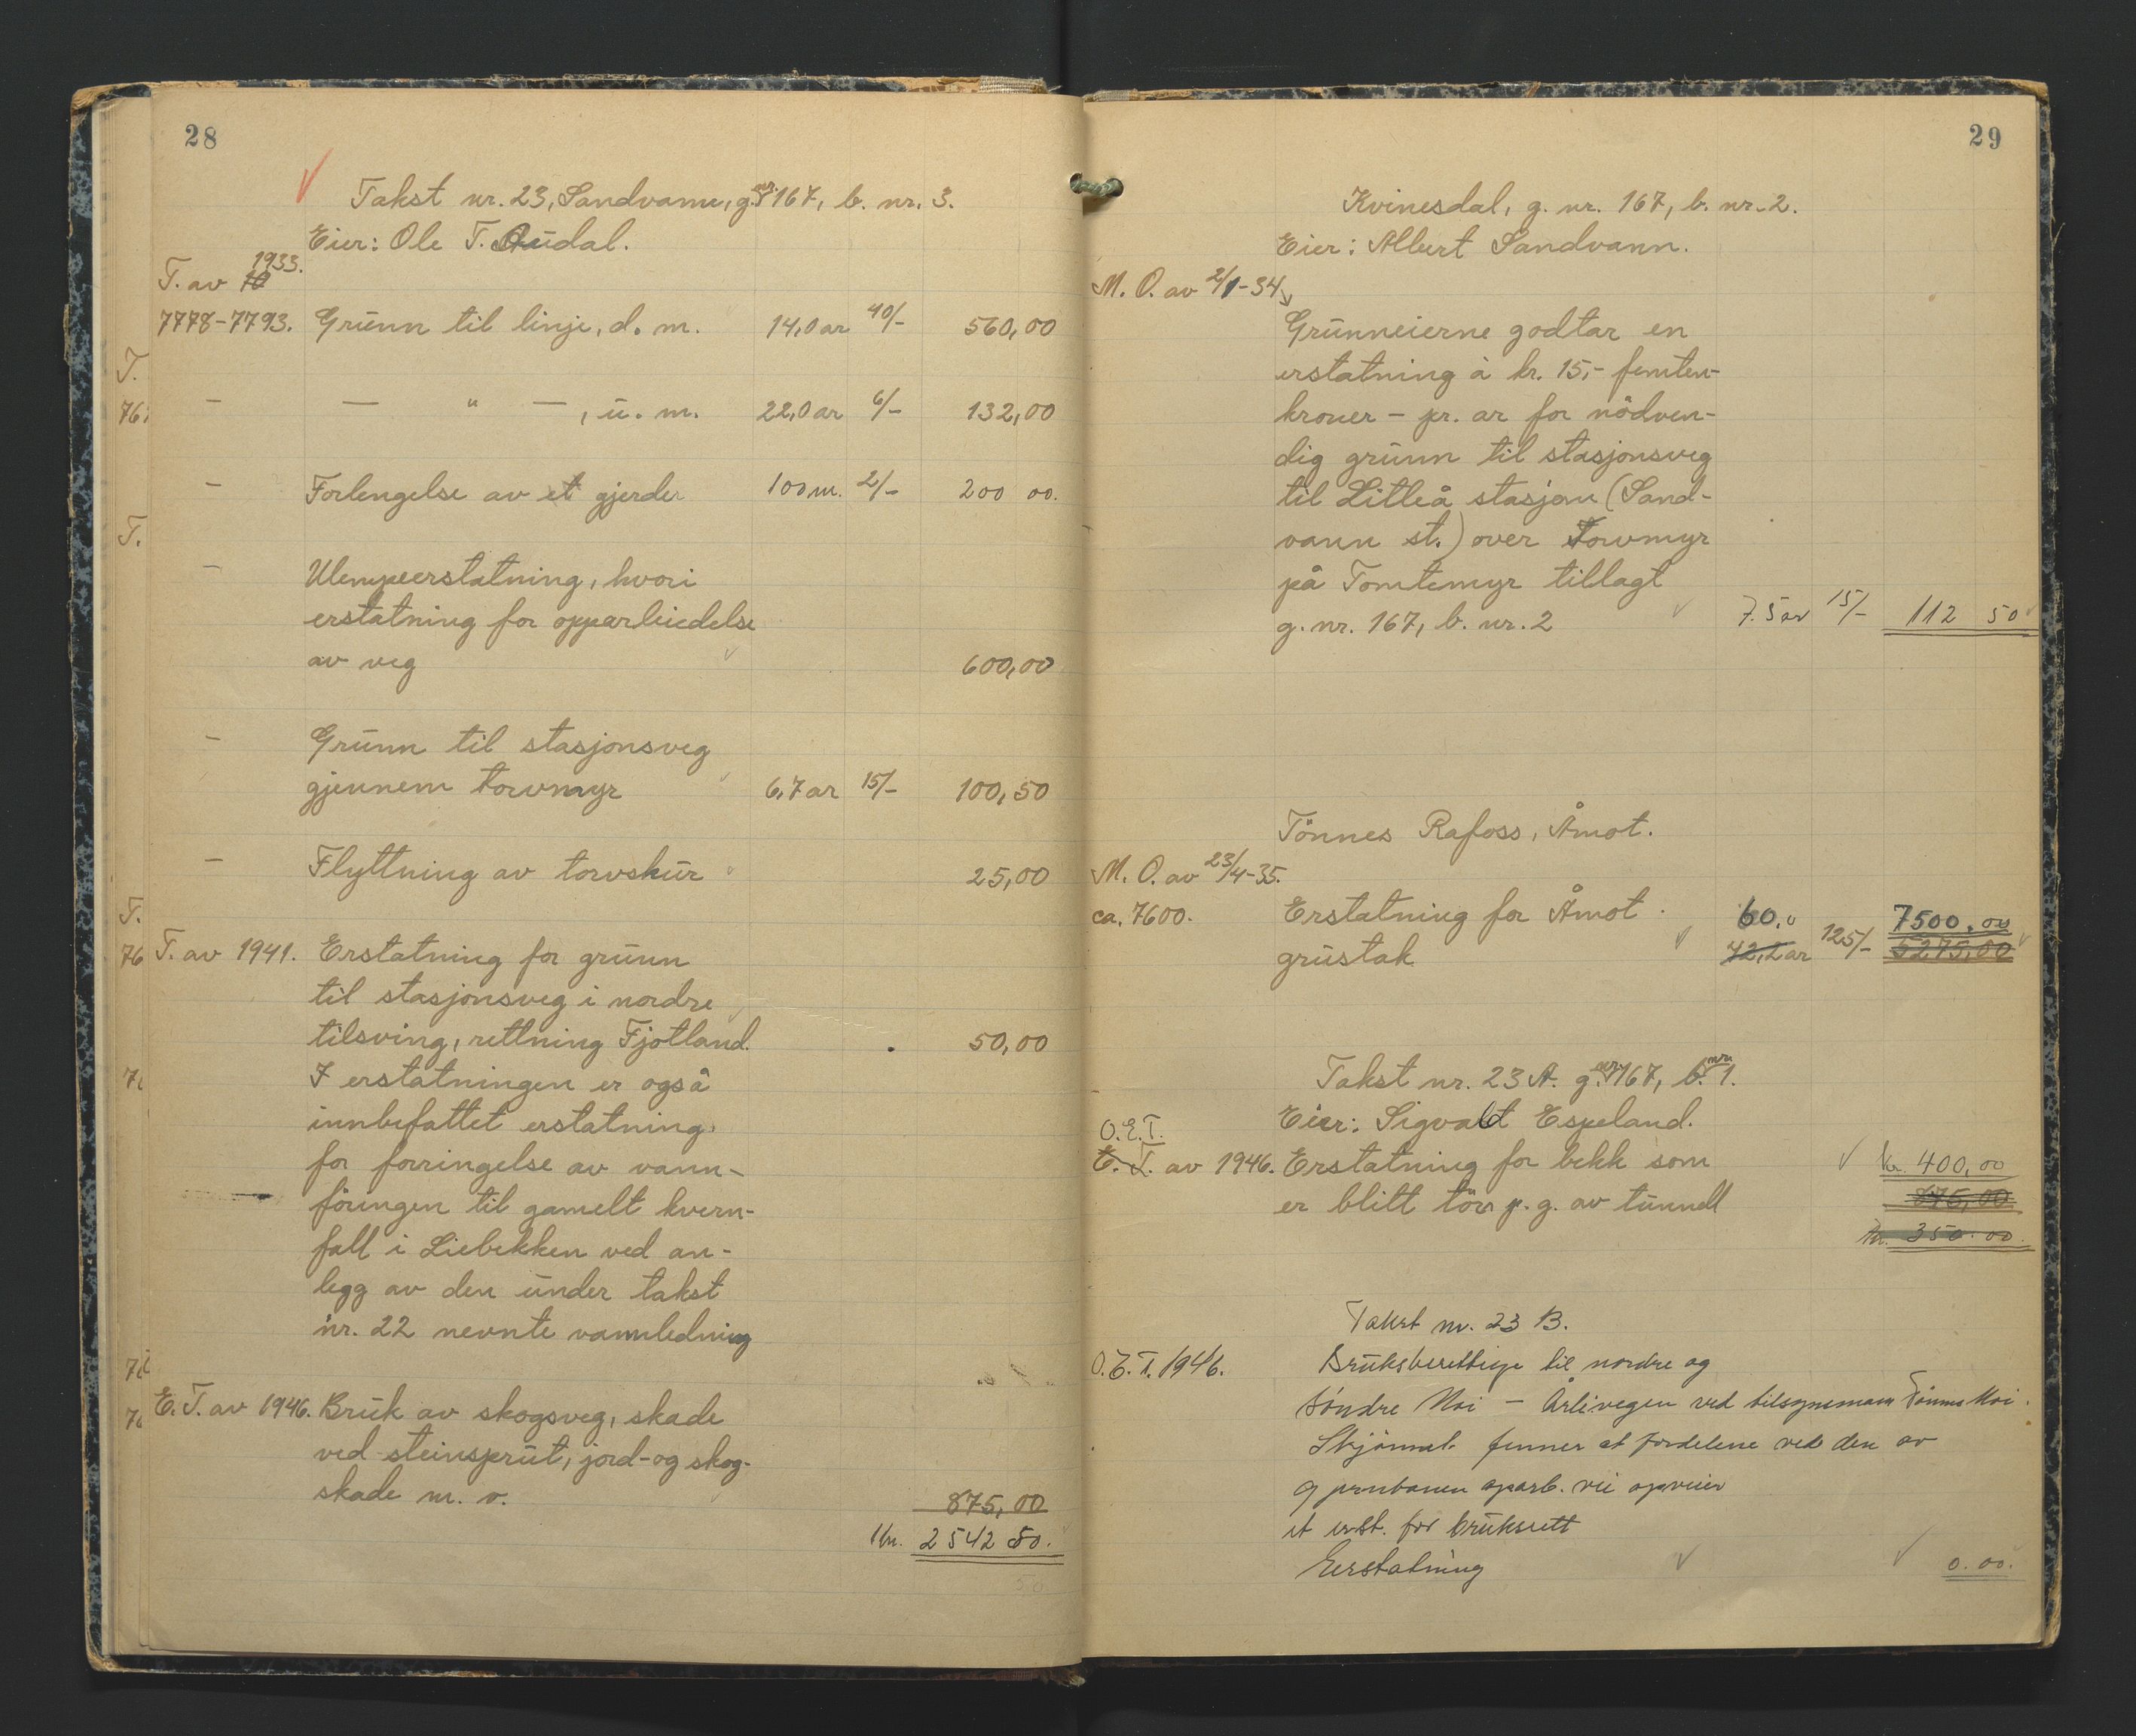 28
Takst nr. 23, Sandvann, g. nr. 167, b. nr. 3.
Eier: Ole T. Audal.
1933.
T. av 10
7778-7793. Grunn til linje, d. m. 14,0 ar 40/- 560,00
- — " —, u. m. 22,0 ar 6/- 132,00
- Forlengelse av et gjerde 100 m. 2/- 200 00.
- Ulempeerstatning, hvori
erstatning for opparbeidelse
av veg 600,00
- Grunn til stasjonsveg
gjennem torvmyr 6,7 ar 15/- 100,50
- Flyttning av torvskur 25,00
T. av 1941. Erstatning for grunn
til stasjonsveg i nordre
tilsving, rettning Fjotland. 50,00
I erstatningen er også
innbefattet erstatning
for forringelse av vann-
föringen til gamelt kvern-
fall i Liebekken ved an-
legg av den under takst
nr. 22 nevnte vannledning
E. T. av 1946. Bruk av skogsveg, skade
ved steinsprut, jord- og skog-
skade m. v. 875,00
Kr. 2542 50.
29
Kvinesdal, g. nr. 167, b. nr. 2.
Eier: Albert Sandvann.
M. O. av 2/1-34
Grunneierne godtar en
erstatning à kr. 15,- femten-
kroner - pr. ar for nödven-
dig grunn til stasjonsveg
til Litleå stasjon (Sand-
vann st.) over Torvmyr
på Tomtemyr tillagt
g. nr. 167, b. nr. 2 7.5 ar 15/- 112 50
Tönnes Rafoss, Åmot.
M. O. av 23/4-35.
ca. 7600. Erstatning for Åmot 60.0 7500.00
grustak 42,2 ar 125/- 5275,00
Takst nr. 23 A. g. nr. 167, b. nr. 1.
Eier: Sigvald Espeland.
O.E.T.
E. T. av 1946. Erstatning for bekk som kr. 400,00
er blitt törr p. g. av tunnell 375,00
kr. 350.00.
Takst nr. 23 B.
O.E.T. 1946. Bruksberettige til nordre og
söndre Moi - Årlivegen ved tilsynsmann Tönnes Moi.
Skjönnet finner at fordelene ved den av
jernbanen oparb. vei opveier
et erst. for bruksrett
Eerstatning 0.00.